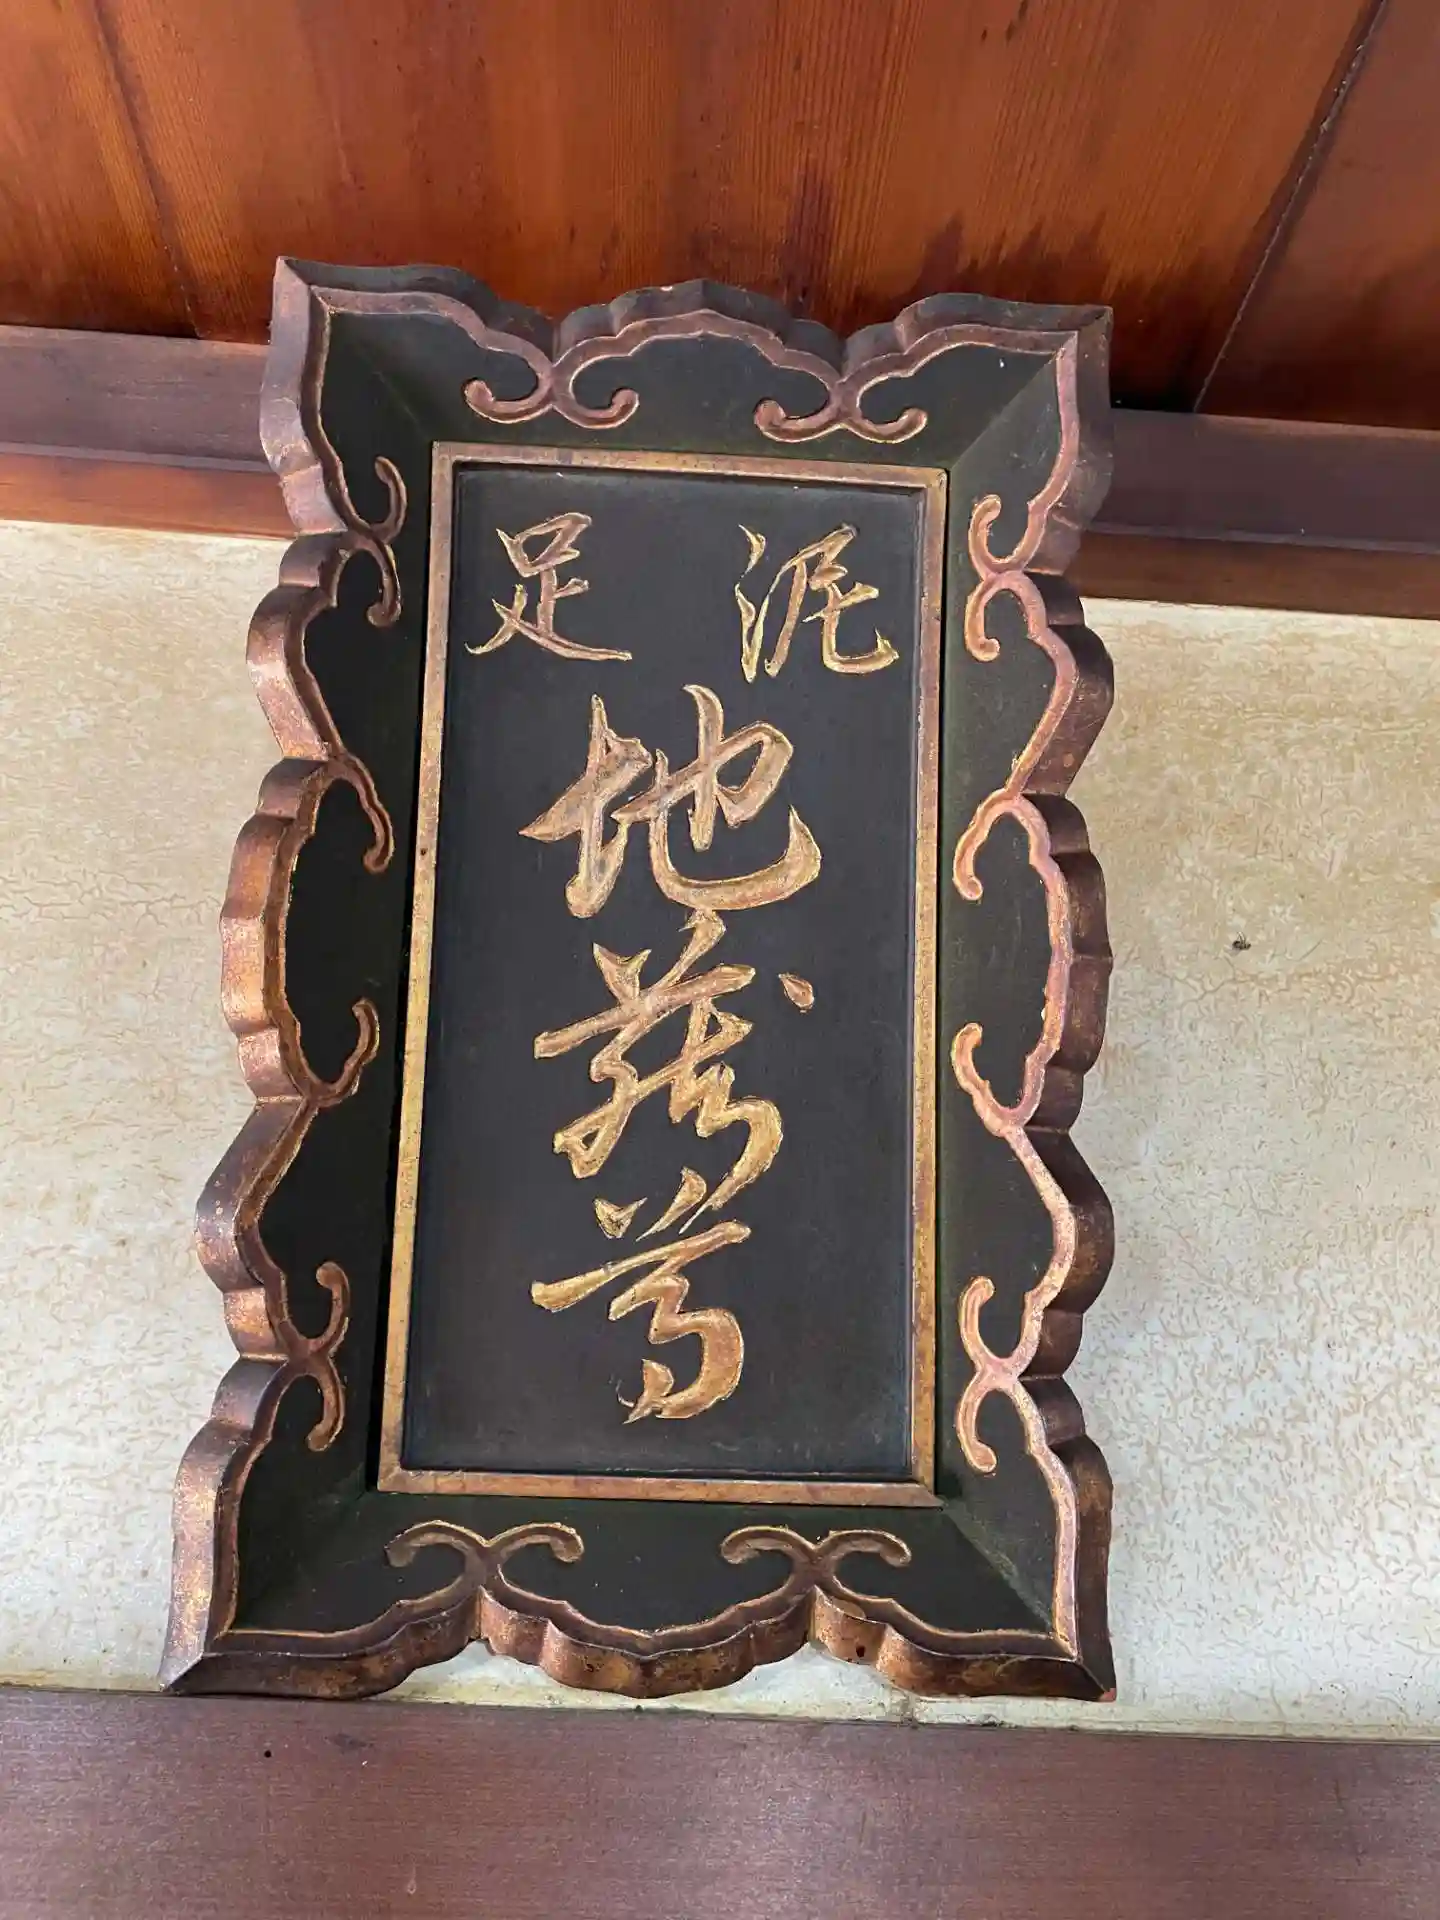 泥足
地蔵尊